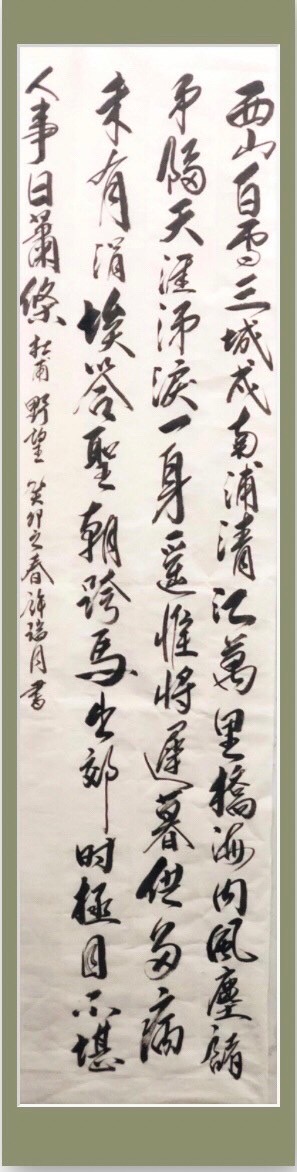 西山白雪三城戍南浦清江萬里橋海内風塵諸
弟隔天涯涕淚一身遥惟將遲暮供多病
未有涓埃答聖朝跨馬出郊時極目不堪
人事日蕭條杜甫野望癸卯之春許瑞月書